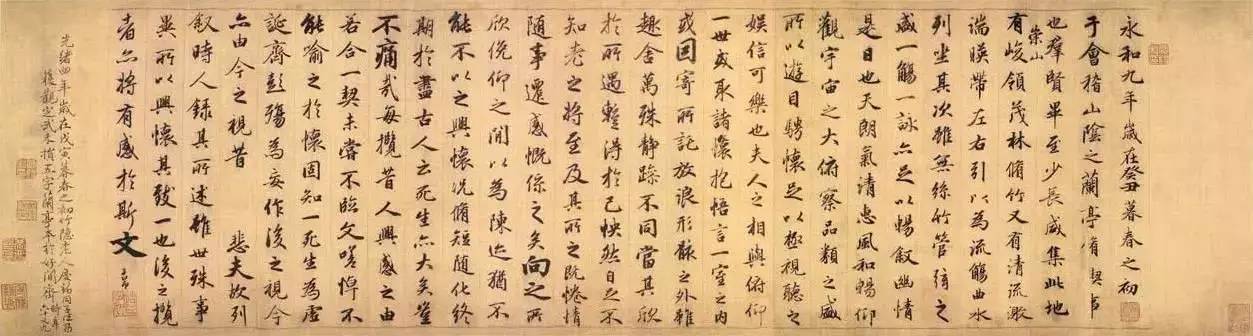 永和九年歲在癸丑暮春之初
于會稽山陰之蘭亭脩稧事
也羣賢畢至少長咸集此地
崇山
有峻領茂林脩竹又有清流激
湍暎帶左右引以為流觴曲水
列坐其次雖無絲竹管弦之
盛一觴一詠亦足以暢敘幽情
是日也天朗氣清惠風和暢仰
觀宇宙之大俯察品類之盛
所以遊目騁懷足以極視聽之
娛信可樂也夫人之相與俯仰
一世或取諸懷抱悟言一室之內
或因寄所託放浪形骸之外雖
趣舍萬殊静躁不同當其欣
於所遇暫得於己怏然自足不
知老之將至及其所之既惓情
隨事遷感慨係之矣向之所
欣俛仰之閒以為陳迹猶不
能不以之興懷況脩短隨化終
期於盡古人云死生亦大矣豈
不痛哉每攬昔人興感之由
若合一契未嘗不臨文嗟悼不
能喻之於懷固知一死生為虛
誕齊彭殤為妄作後之視今
亦由今之視昔 悲夫故列
敘時人錄其所述雖世殊事
異所以興懷其致一也後之攬
者亦將有感於斯文
光緒四年歲在戊寅暮春之初竹隱老人
獲觀定武未損五字蘭亭本於